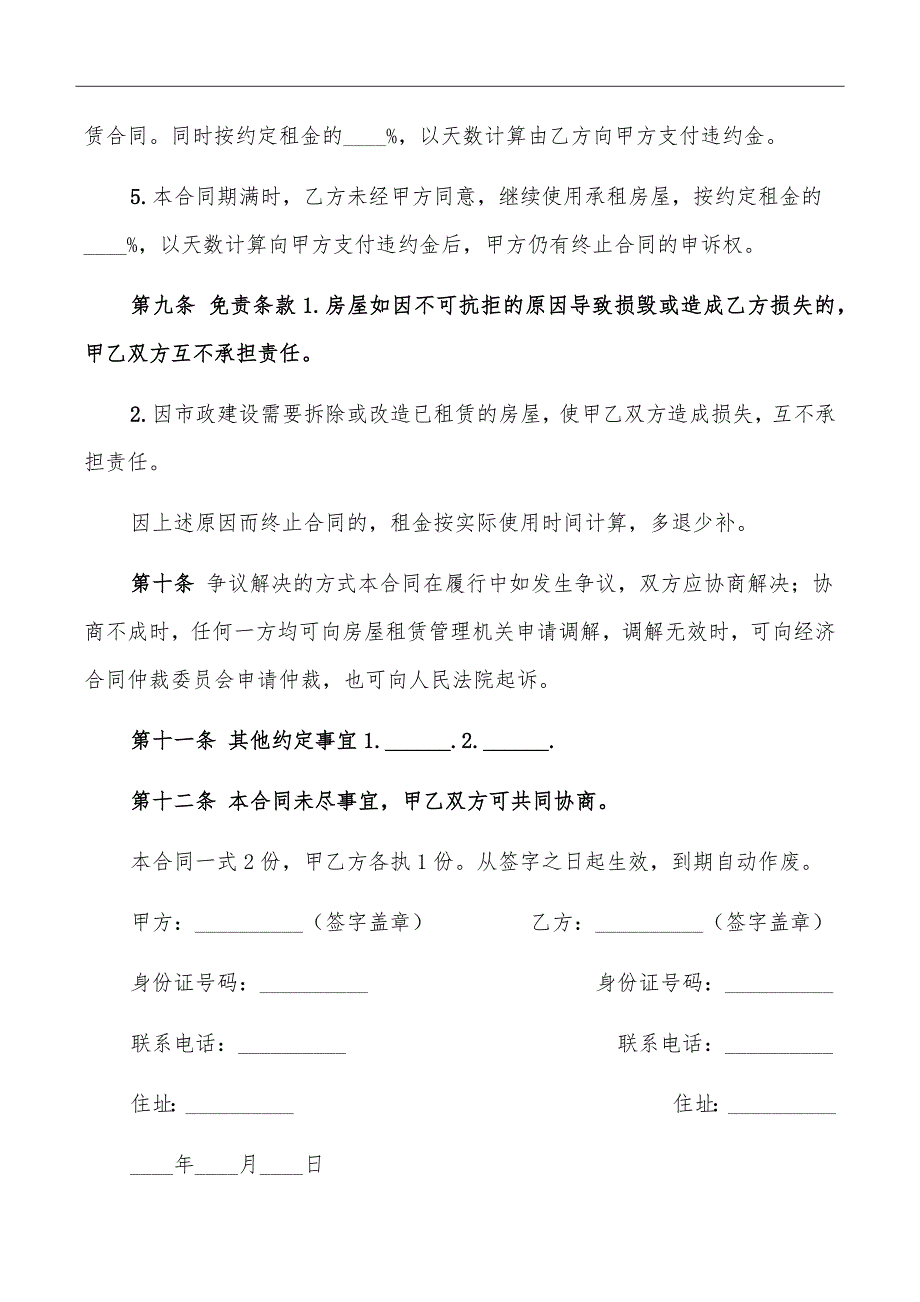 赁合同。同时按约定租金的____%，以天数计算由乙方向甲方支付违约金。
5.本合同期满时，乙方未经甲方同意，继续使用承租房屋，按约定租金的
____%，以天数计算向甲方支付违约金后，甲方仍有终止合同的申诉权。
第九条 免责条款1.房屋如因不可抗拒的原因导致损毁或造成乙方损失的，
甲乙双方互不承担责任。
2.因市政建设需要拆除或改造已租赁的房屋，使甲乙双方造成损失，互不承
担责任。
因上述原因而终止合同的，租金按实际使用时间计算，多退少补。
第十条 争议解决的方式本合同在履行中如发生争议，双方应协商解决；协
商不成时，任何一方均可向房屋租赁管理机关申请调解，调解无效时，可向经济
合同仲裁委员会申请仲裁，也可向人民法院起诉。
第十一条 其他约定事宜1.______.2.______.
第十二条 本合同未尽事宜，甲乙双方可共同协商。
本合同一式2份，甲乙方各执1份。从签字之日起生效，到期自动作废。
甲方：__________（签字盖章） 乙方：__________（签字盖章）
身份证号码：__________ 身份证号码：__________
联系电话：__________ 联系电话：__________
住址：__________ 住址：__________
____年____月____日